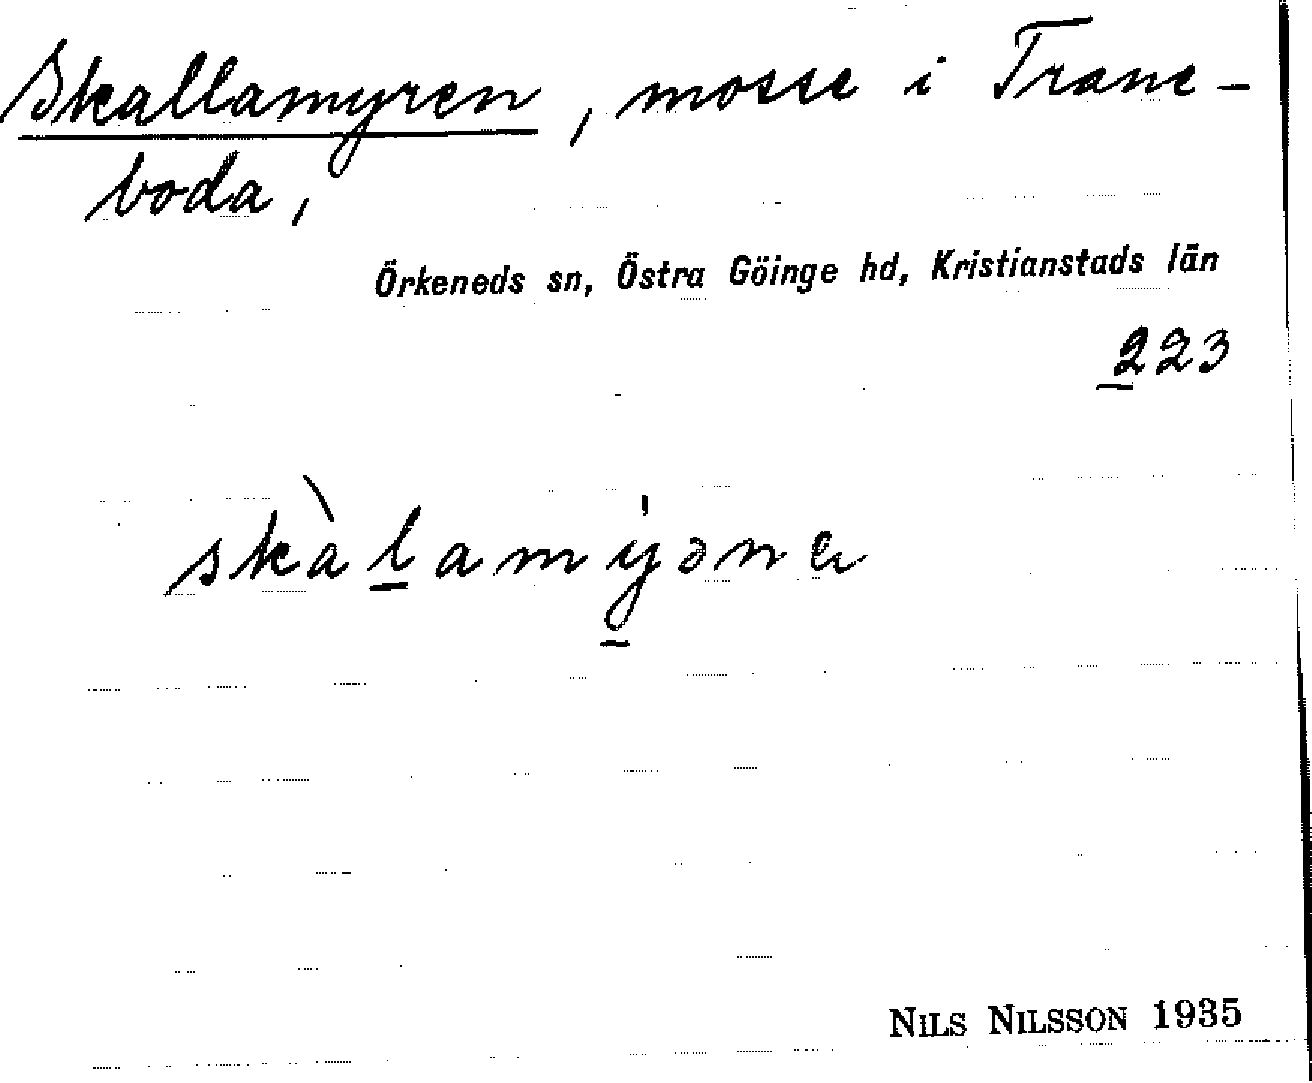 Skallamyren, mosse i Trane-
boda,
Örkeneds sn, Östra Göinge hd, Kristianstads län
223
NILS NILSSON 1935